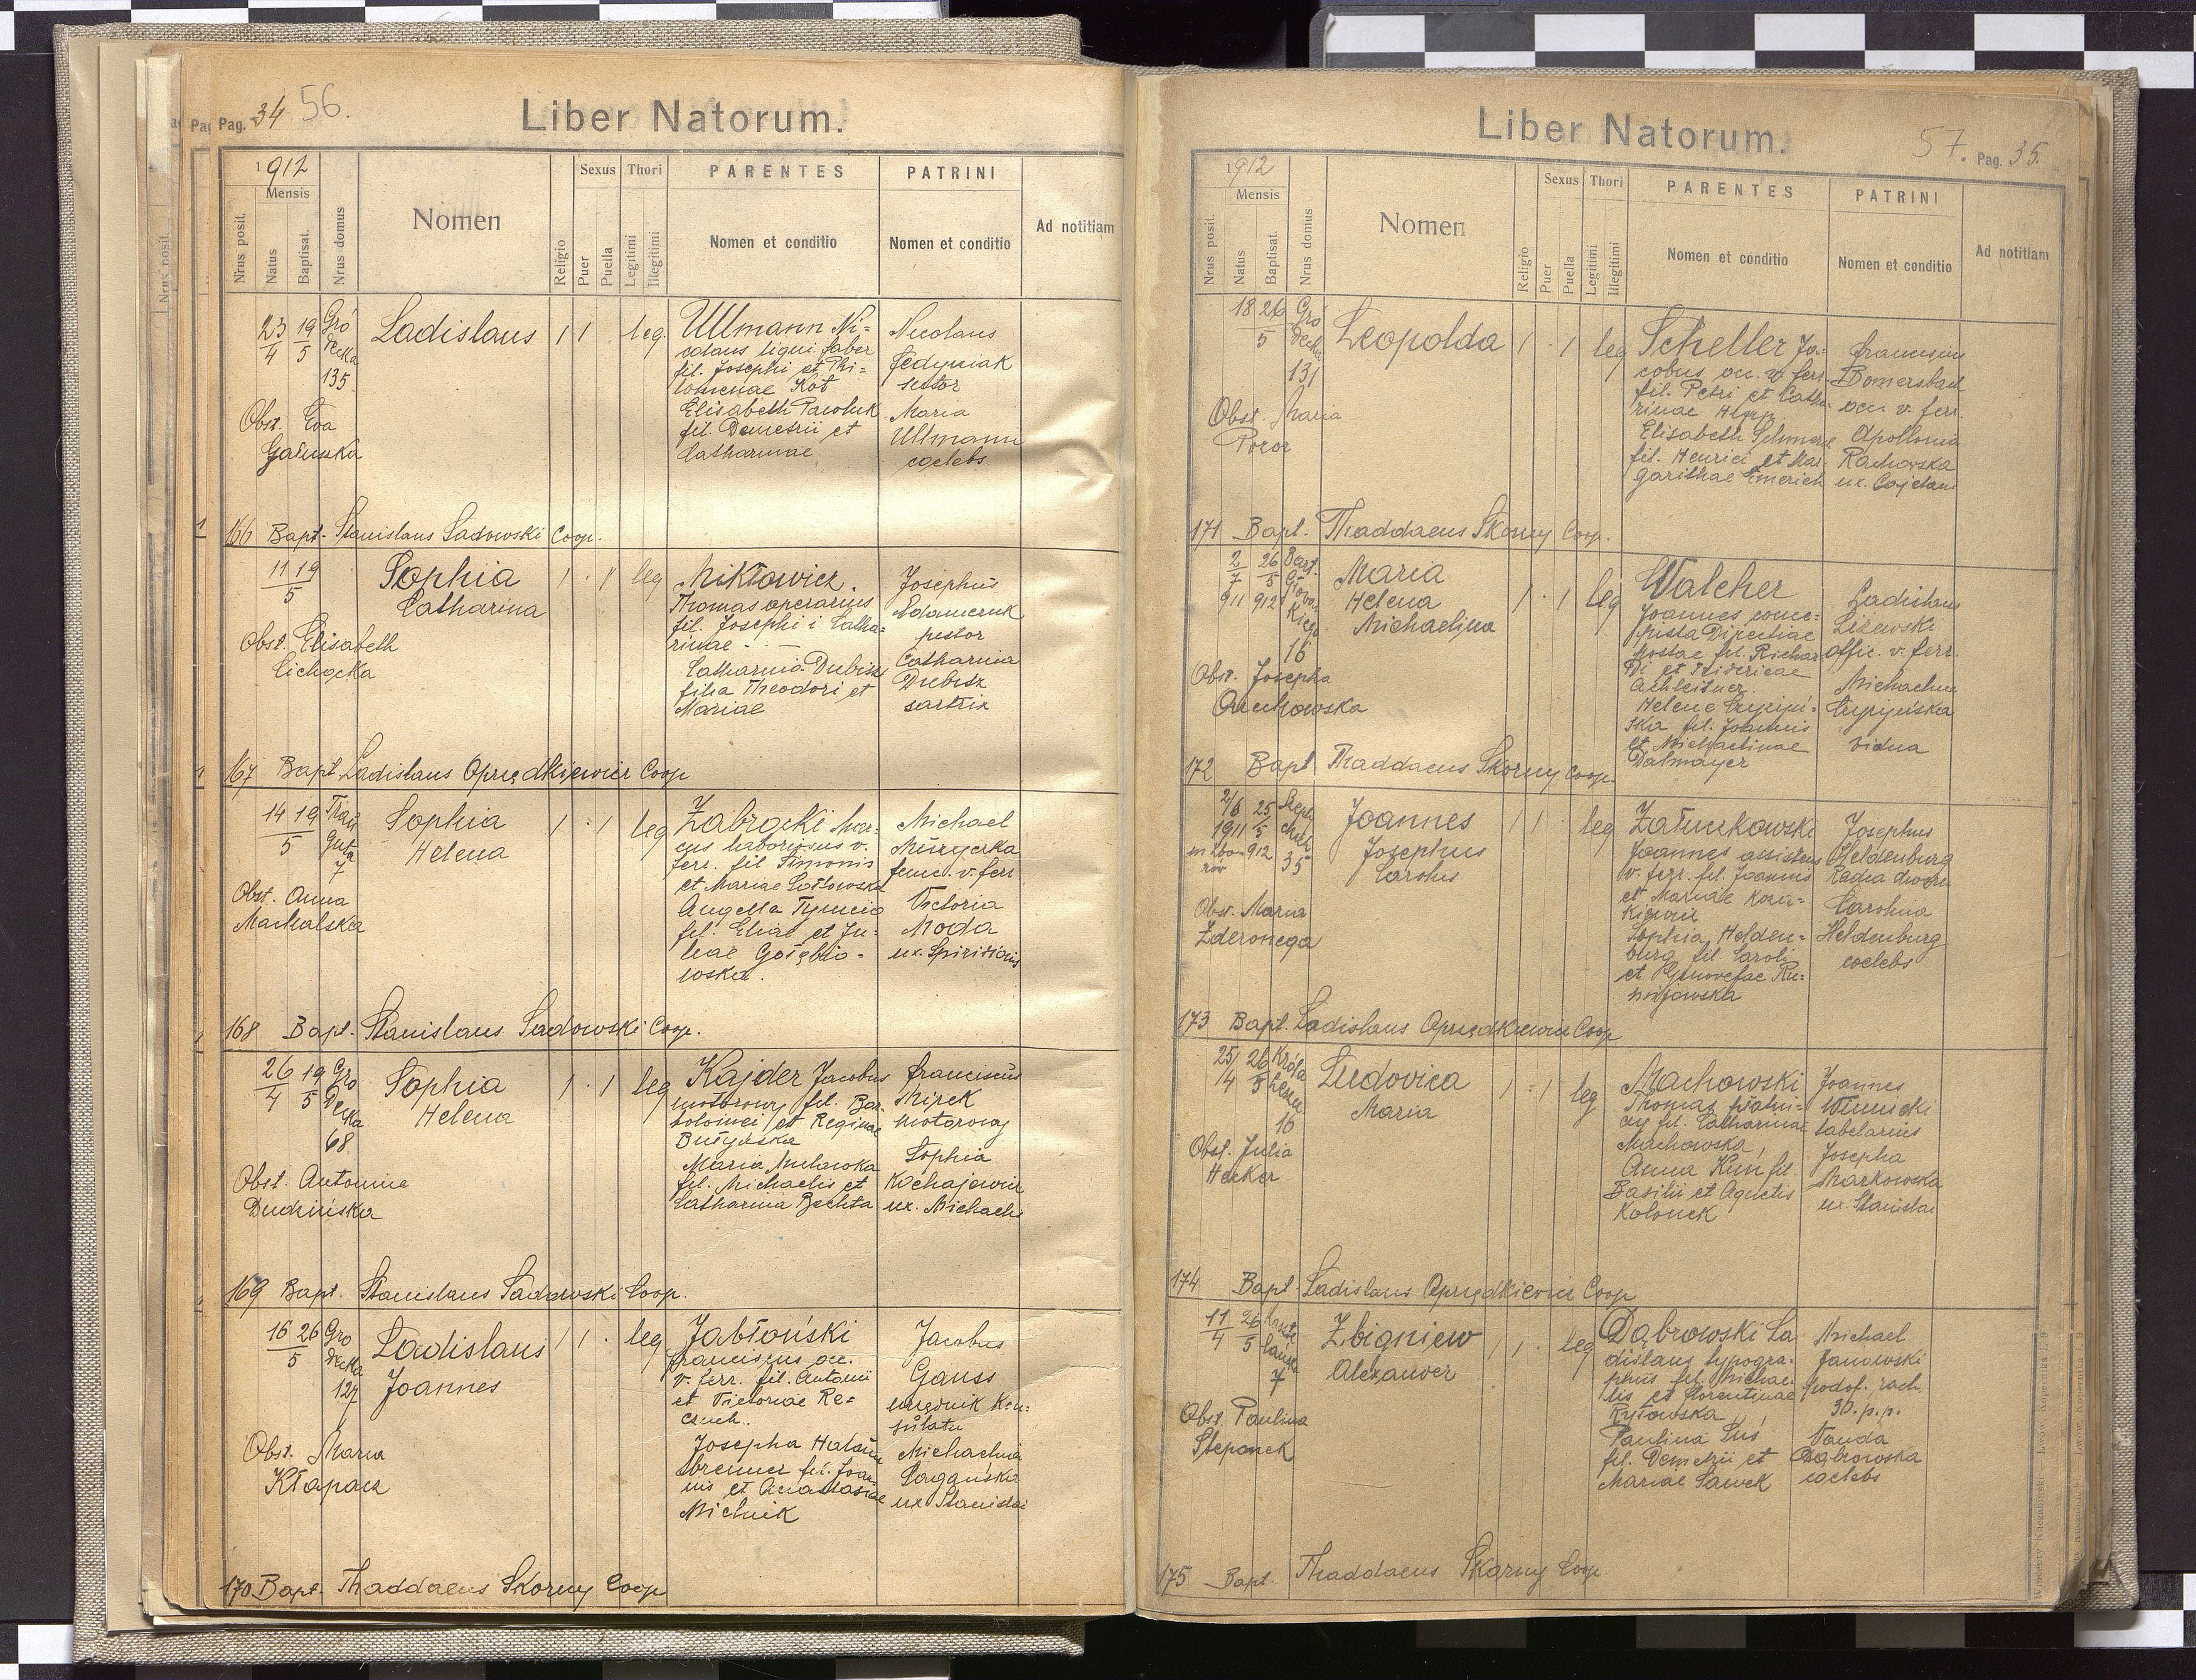 Pag. 34 56.
Liber Natorum.
1912
Mensis
Nrus posit.
Natus
Baptisat.
Nrus domus
Nomen
Religio
Sexus
Puer
Puella
Thori
Legitimi
Illegitimi
PARENTES
Nomen et conditio
PATRINI
Nomen et conditio
Ad notitiam
23/4 19/5 Gródecka 135
Ladislaus
1 1 leg.
Ullmann Ni=
colaus ligni faber
fil. Josephi et Phi=
lomenae Kot
Elisabeth Pawluk
fil. Demetrii et
Catharinae
Nicolaus
Fedyniak
sutor
Maria
Ullmann
coelebs
Obst. Eva
Gałuszka
166 Bapt. Stanislaus Sadowski Coop.
11 19
5
Sophia
Catharina
1 · 1 leg
Mikłowicz.
Thomas operarius
fil. Josephi i Catha=
rinae
Catharina Dubisz
filia Theodori et
Mariae
Josephus
Adamczuk
pistor
Catharina
Dubisz
sartrix
Obst. Elisabeth
Cichocka
167 Bapt Ladislaus Oprzędkiewicz Coop
14 19
5
Traugutta
7
Sophia
Helena
1 · 1 leg
Zabrocki Mar=
cus laboriosus v.
ferr. fil Simonis
et Mariae
Angella
fil. Eliae et Ju=
liae Gołębio=
wska.
Michael
ferr
Victoria
Moda
ux.
Obst. Anna
Machalska
168 Bapt. Stanislaus Sadowski Coop.
26 19
4 5
Grodecka
68
Sophia
Helena
1 · 1 leg
Kajder Jacobus
motorowy fil. Bar=
tolomei et Reginae
Maria
fil. Michaelis et
Catharina Bechta
Franciscus
Mirek
motorowy
Sophia
ux. Michaelis
Obst. Antonina
Dudzińska
169 Bapt. Stanislaus Sadowski Coop.
16 26
5
Grodecka
127
Ladislaus
Joannes
1 1 · leg
Jabłoński
Franciscus occ.
v. ferr. fil. Antonii
et Victoriae Re=
Josepha
fil. Joan
nis et Anastasiae
Michnik
Jacobus
Gauss
urzędnik Kon=
sulatu
Michaelina
ux Stanislai
Obst. Maria
Kłapacz
170 Bapt. Thaddaeus Skorny Coop
Liber Natorum.
57. Pag. 35.
1912
Mensis
Nrus posit.
Natus
Baptisat.
Nrus domus
Nomen
Religio
Sexus
Puer
Puella
Thori
Legitimi
Illegitimi
PARENTES
Nomen et conditio
PATRINI
Nomen et conditio
Ad notitiam
18 26
5
Grodecka
131
Leopolda
1 · 1 leg
Scheller Ja=
cobus occ. v. ferr.
fil. Petri et Catha=
rinae
Elisabeth
fil. Henrici et Mar=
garithae Emerich
Franciscus
occ. v. ferr.
Apollonia
Rachowska
ux. Cajetani
Obst. Maria
171 Bapt. Thaddaeus Skorny Coop.
2 26
7 5
911 912
16
Maria
Helena
Michaelina
1 · 1 leg
Walcher
Joannes conci=
pista Directiae
Postae fil. Richar
di et Fridericae
Achleitner.
Helena
ska fil. Joannis
et Michaelinae
Dalmayer
Ladislaus
offic. v. ferr.
Michaelina
vidua
Obst. Josepha
172 Bapt Thaddaeus Skorny Coop.
2/6 25
1911 5
912
35
Joannes
Josephus
Carolus
1 1 · leg
Załuczkowski
Joannes assistens
v. ferr. fil. Joannis
et Mariae
Sophia Helden=
burg fil. Caroli
et Genovefae Ru=
Josephus
Heldenburg
Radca dworu
Carolina
Heldenburg
coelebs
Obst. Maria
Zderonega
173 Bapt. Ladislaus Oprzędkiewicz Coop
25/ 26
/4 5
Króla
16
Ludovica
Maria
1 · 1 leg
Machowski
Thomas
fil. Catharinae
Machowska
Anna Kuń fil.
Basilii et Agnetis
Kolonek
Joannes
Winnicki
tabelarius
Josepha
Markowska
ux. Stanislai
Obst. Julia
Hecker
174 Bapt. Ladislaus Oprzędkiewicz Coop
11 26
4 5
7
Zbigniew
Alexander
1 1 · leg
Dąbrowski La
dislaus typogra=
phus fil. Michae
lis et Florentinae
Ryłowska
Paulina Łuś
fil. Demetrii et
Mariae Sawek
Michael
Janowski
podof. rach.
30. p.p.
Vanda
Dąbrowska
coelebs
Obst. Paulina
Stepanek
175 Bapt. Thaddaeus Skorny Coop